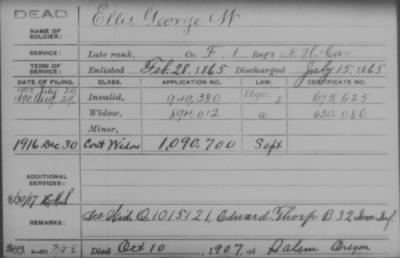 DEAD
Ellis, George W
NAME OF SOLDIER:
SERVICE: Late rank, Co. F, 1 Reg't N.H. Cav
TERM OF SERVICE: Enlisted Feb. 28, 1865 Discharged July 15, 1865
DATE OF FILING. CLASS. APPLICATION NO. LAW. CERTIFICATE NO.
Invalid, 949,380 675,625
1890 Aug. 29. Widow, 894,012 a 630,086
Minor,
1916 Dec 30 Cont Widow 1,090,700 Sept
ADDITIONAL SERVICES:
REMARKS: See Wid. O. 1015121, Edward Thorp B 32 Iowa Inf.
Died Oct 10, 1907, at Salem Oregon